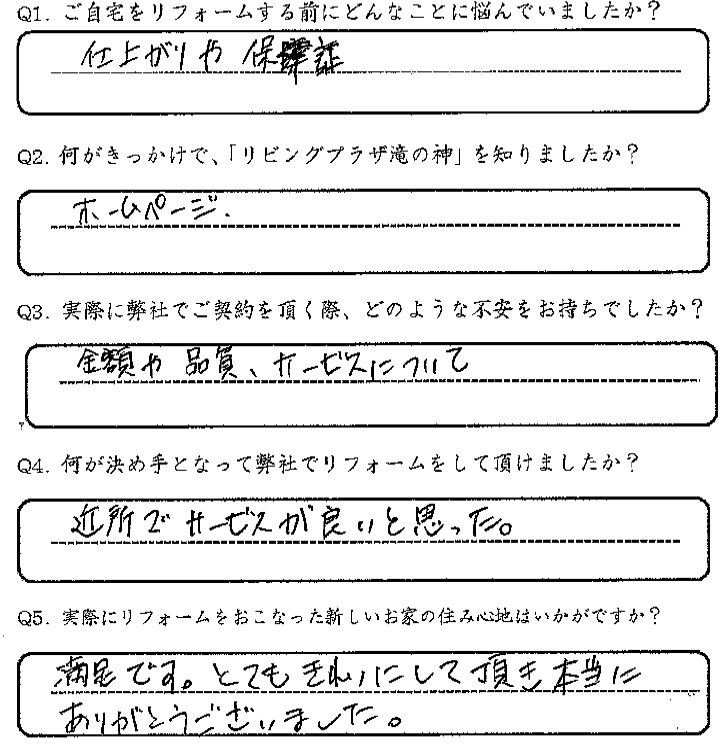 Q1. ご自宅をリフォームする前にどんなことに悩んでいましたか？
仕上がりや 保証
Q2. 何がきっかけで、「リビングプラザ滝の神」を知りましたか？
ホームページ.
Q3. 実際に弊社でご契約を頂く際、どのような不安をお持ちでしたか？
金額や 品質、サービスについて
Q4. 何が決め手となって弊社でリフォームをして頂けましたか？
近所で サービスが良いと思った。
Q5. 実際にリフォームをおこなった新しいお家の住み心地はいかがですか？
満足です。とてもきれいにして頂き本当に
ありがとうございました。